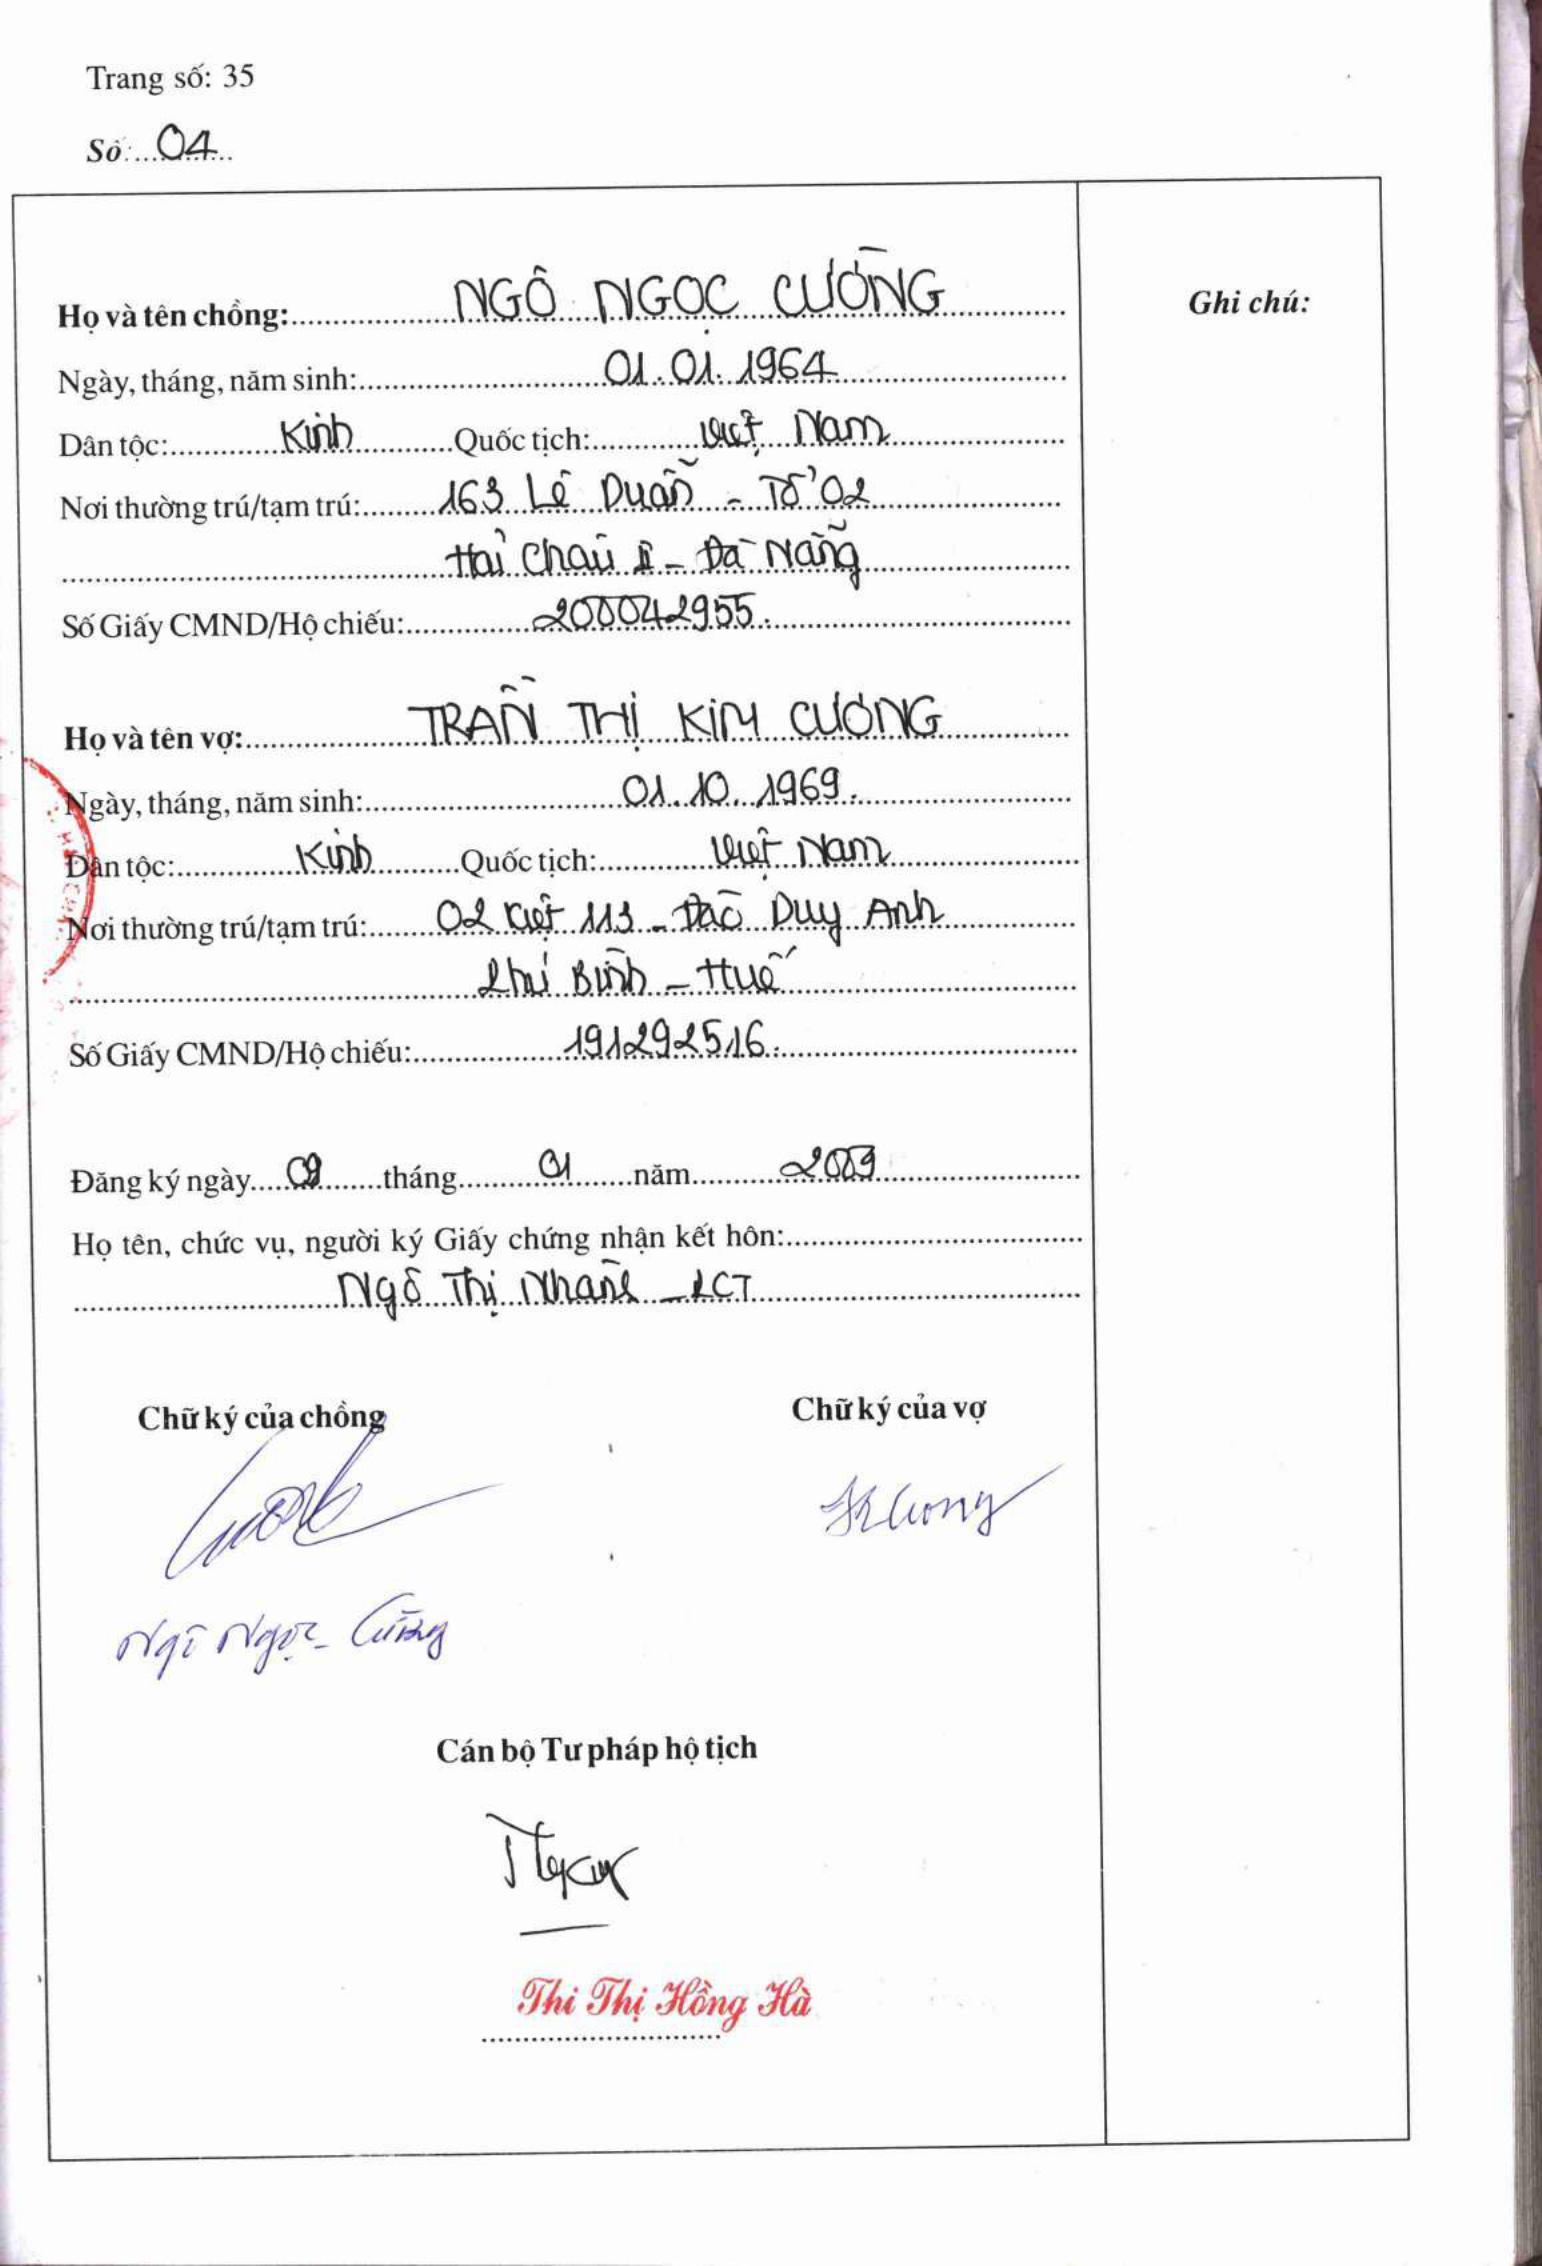 Trang số: 35
Số: 04
Họ và tên chồng: NGÔ NGỌC CƯỜNG
Ghi chú:
Ngày, tháng, năm sinh: 01.01.1964
Dân tộc: Kinh Quốc tịch: Việt Nam
Nơi thường trú/tạm trú: 163 Lê Duẩn - Tổ 02
Hải Châu II - Đà Nẵng
Số Giấy CMND/Hộ chiếu: 200042955.
Họ và tên vợ: TRẦN THỊ KIM CƯƠNG
Ngày, tháng, năm sinh: 01.10.1969.
Dân tộc: Kinh Quốc tịch: Việt Nam
Nơi thường trú/tạm trú: 02 Kiệt 113 - Đào Duy Anh
Phú Bình - Huế
Số Giấy CMND/Hộ chiếu: 191292516.
Đăng ký ngày tháng 01 năm 2009
Họ tên, chức vụ, người ký Giấy chứng nhận kết hôn:
Ngô Thị Nhanh - PCT
Chữ ký của chồng
Chữ ký của vợ
Ngô Ngọc Cường
Cán bộ Tư pháp hộ tịch
Thi Thị Hồng Hà